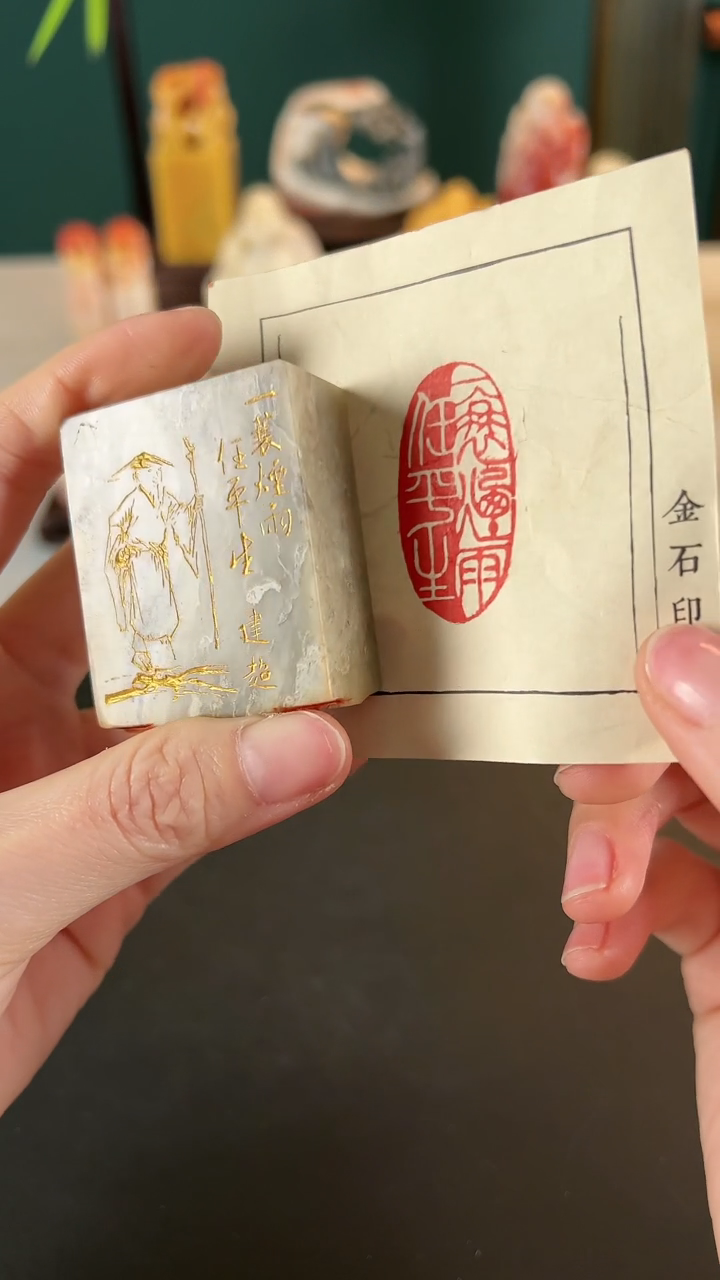 一蓑煙雨
任平生 建超
一蓑煙雨
任平生
金石印